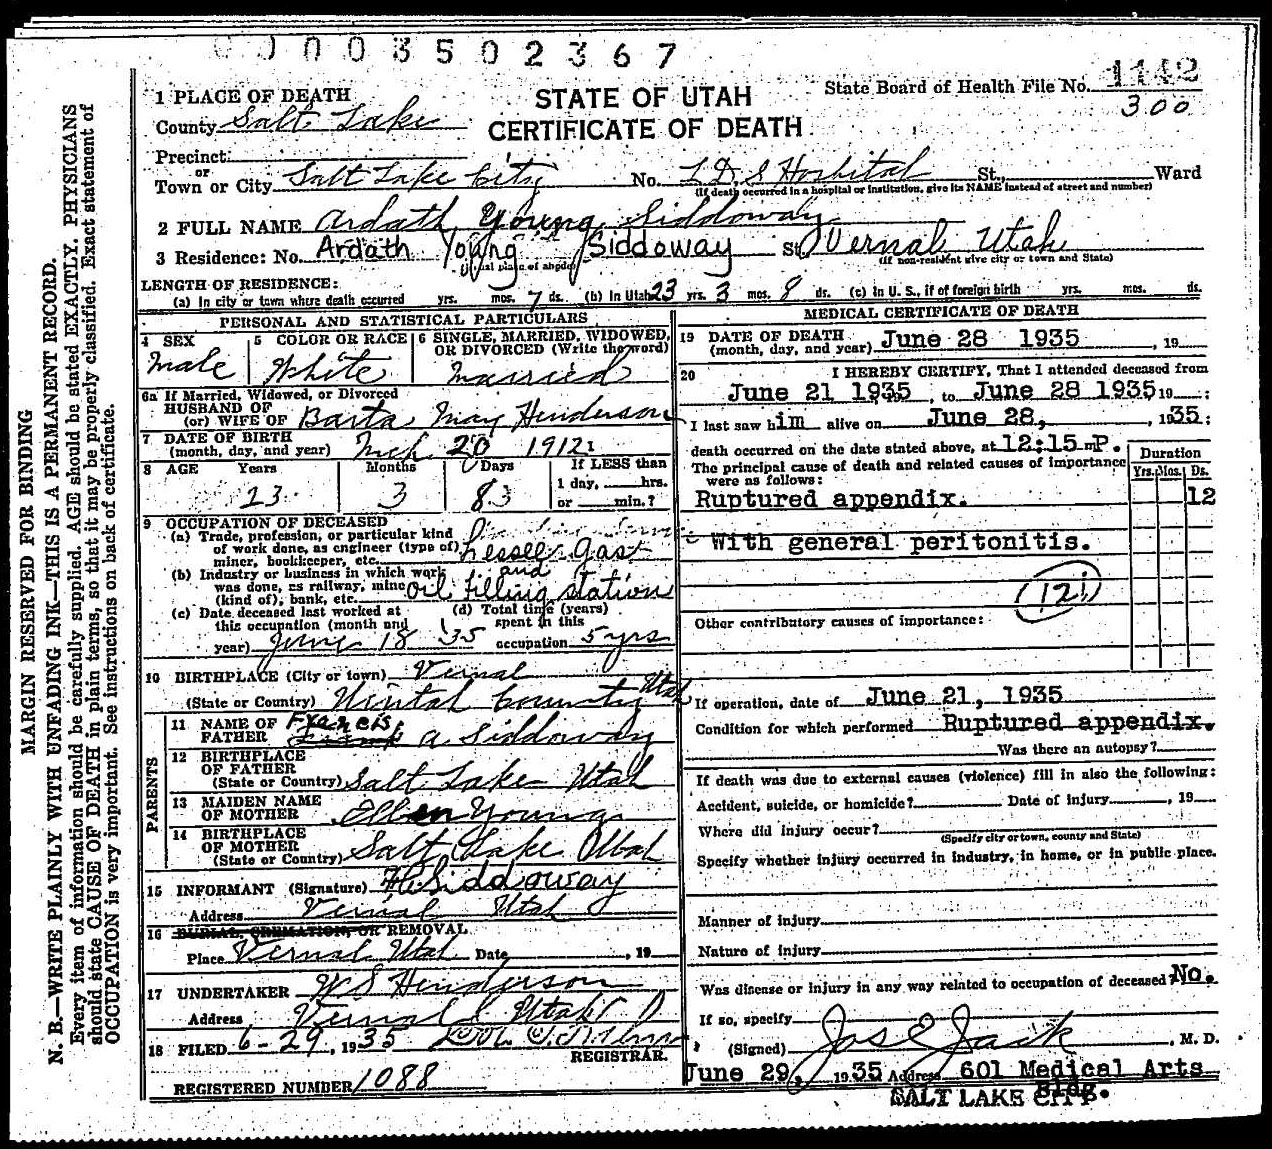 0003502367
1 PLACE OF DEATH
STATE OF UTAH
CERTIFICATE OF DEATH
State Board of Health File No. 1142
300
County Salt Lake
Precinct
or
Town or City Salt Lake City No. L.D.S Hospital St., Ward
(If death occurred in a hospital or institution, give its NAME instead of street and number)
2 FULL NAME Ardath Young Siddoway
3 Residence: No. Ardath Young Siddoway St. Vernal Utah
(Usual place of abode) (If non-resident give city or town and State)
LENGTH OF RESIDENCE:
(a) In city or town where death occurred yrs. mos. 7 ds. (b) In Utah 23 yrs. 3 mos. 8 ds. (c) in U. S., if of foreign birth yrs. mos. ds.
PERSONAL AND STATISTICAL PARTICULARS
4 SEX 5 COLOR OR RACE 6 SINGLE, MARRIED, WIDOWED, OR DIVORCED (Write the word)
Male White Married
6a If Married, Widowed, or Divorced
HUSBAND OF
(or) WIFE OF Barta May Henderson
7 DATE OF BIRTH
(month, day, and year) Mch 20 1912
8 AGE Years Months Days If LESS than
1 day, hrs.
23 3 8 or min.?
9 OCCUPATION OF DECEASED
(a) Trade, profession, or particular kind
of work done, as engineer (type of)
miner, bookkeeper, etc. Lessee Gas
(b) Industry or business in which work and
was done, as railway, mine oil filling station
(kind of), bank, etc.
(c) Date deceased last worked at (d) Total time (years)
this occupation (month and spent in this
year) June 18 '35 occupation 5 yrs
10 BIRTHPLACE (City or town) Vernal
(State or Country) Uintah County Utah
PARENTS
11 NAME OF
FATHER Francis A Siddoway
12 BIRTHPLACE
OF FATHER
(State or Country) Salt Lake Utah
13 MAIDEN NAME
OF MOTHER Ellen Young
14 BIRTHPLACE
OF MOTHER
(State or Country) Salt Lake Utah
15 INFORMANT (Signature) Siddoway
Address Vernal Utah
16 BURIAL, CREMATION, OR REMOVAL
Place Vernal Utah Date , 19
17 UNDERTAKER W S Henderson
Address Vernal Utah
18 FILED 6-29, 1935
REGISTRAR.
REGISTERED NUMBER 1088
MEDICAL CERTIFICATE OF DEATH
19 DATE OF DEATH
(month, day, and year) June 28 1935 , 19
20 I HEREBY CERTIFY, That I attended deceased from
June 21 1935, to June 28 1935 19 ;
I last saw him alive on June 28, 1935:
death occurred on the date stated above, at 12:15 mP.
The principal cause of death and related causes of importance
were as follows:
Duration
Yrs. Mos. Ds.
Ruptured appendix. 12
With general peritonitis.
121
Other contributory causes of importance:
If operation, date of June 21, 1935
Condition for which performed Ruptured appendix.
Was there an autopsy?
If death was due to external causes (violence) fill in also the following:
Accident, suicide, or homicide? Date of injury , 19
Where did injury occur?
(Specify city or town, county and State)
Specify whether injury occurred in industry, in home, or in public place.
Manner of injury
Nature of injury
Was disease or injury in any way related to occupation of deceased? No.
If so, specify
(Signed) Jos E Jack , M. D.
June 29, 1935 Address 601 Medical Arts
Bldg.
SALT LAKE CITY
MARGIN RESERVED FOR BINDING
N. B.—WRITE PLAINLY WITH UNFADING INK—THIS IS A PERMANENT RECORD.
Every item of information should be carefully supplied. AGE should be stated EXACTLY. PHYSICIANS
should state CAUSE OF DEATH in plain terms, so that it may be properly classified. Exact statement of
OCCUPATION is very important. See instructions on back of certificate.